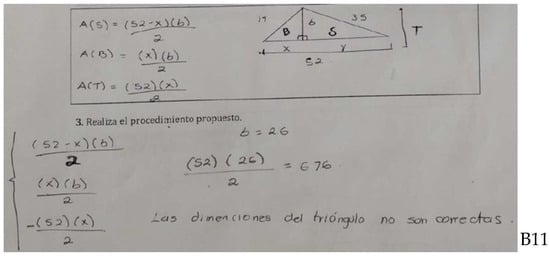 A(S) = (52-x)(b)
2
A(B) = (x)(b)
2
A(T) = (52)(x)
2
17 b 35 T
B S
x y
52
3. Realiza el procedimiento propuesto.
(52-x)(b)
2
b = 26
(x)(b)
2
(52)(26) = 676
2
-(52)(x)
2
Las dimenciones del triángulo no son correctas.
B11